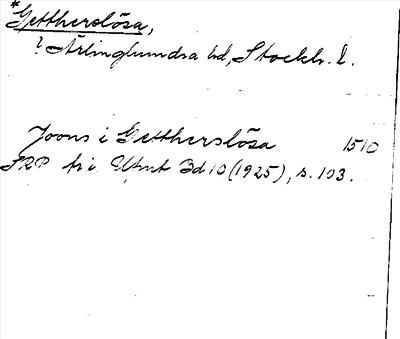 *Gettherslösa,
? Ärlinghundra hd, Stockh. l.
Joons i Gettherslösa 1510
FRP tr i Ufmt Bd 10 (1925), s. 103.